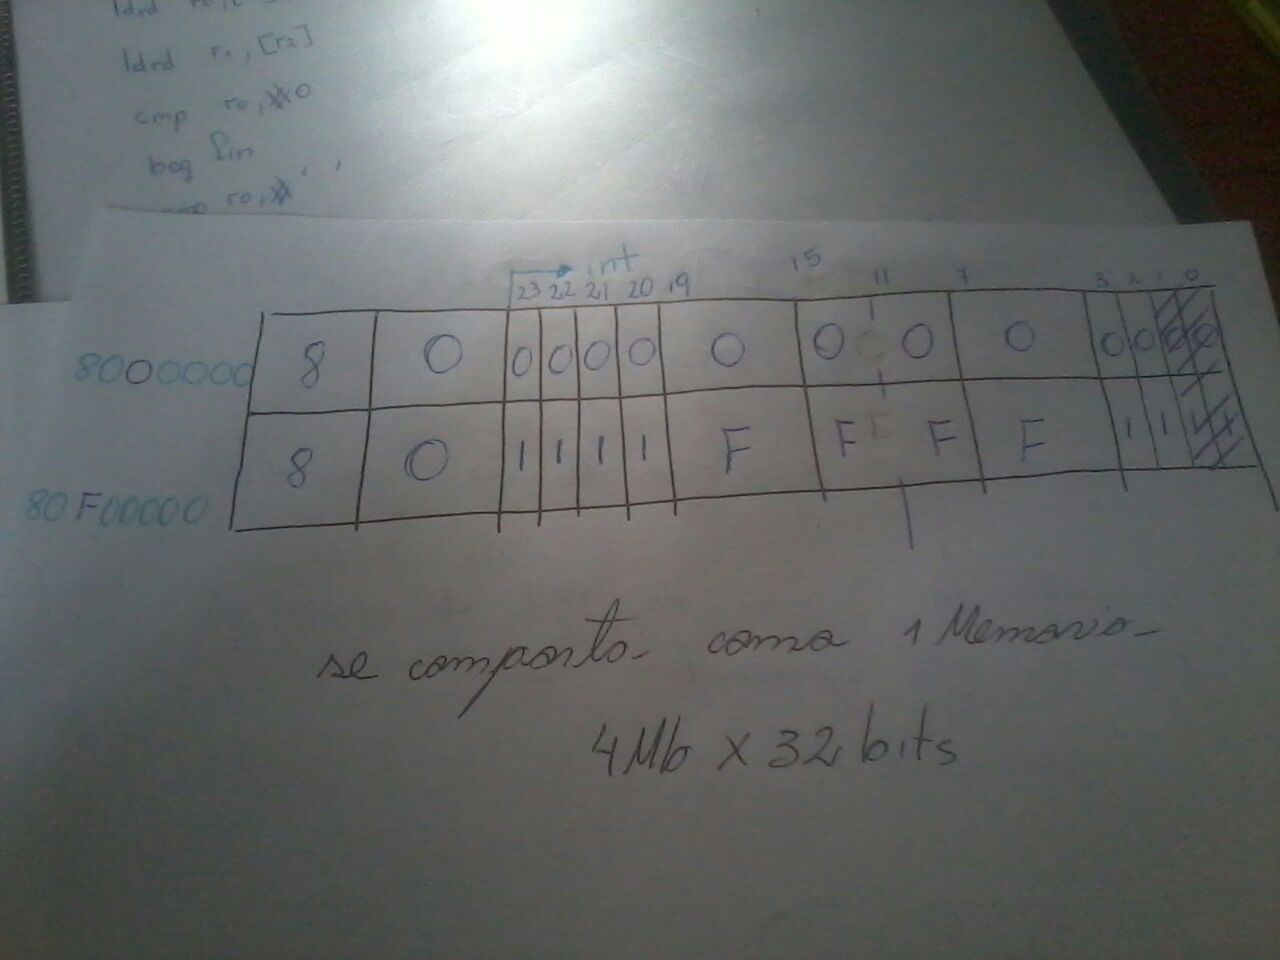 ldrd r₁, [r₂]
cmp r0, 0
beq fin
r0, ' '
int
23 22 21 20 19 15 11 7 3 2 1 0
8000000 8 0 0 0 0 0 0 0 0 0 0 0 0 0
8 0 1 1 1 1 F F F F 1 1 1 1
80F00000
se comporta como 1 Memoria
4Mb x 32 bits